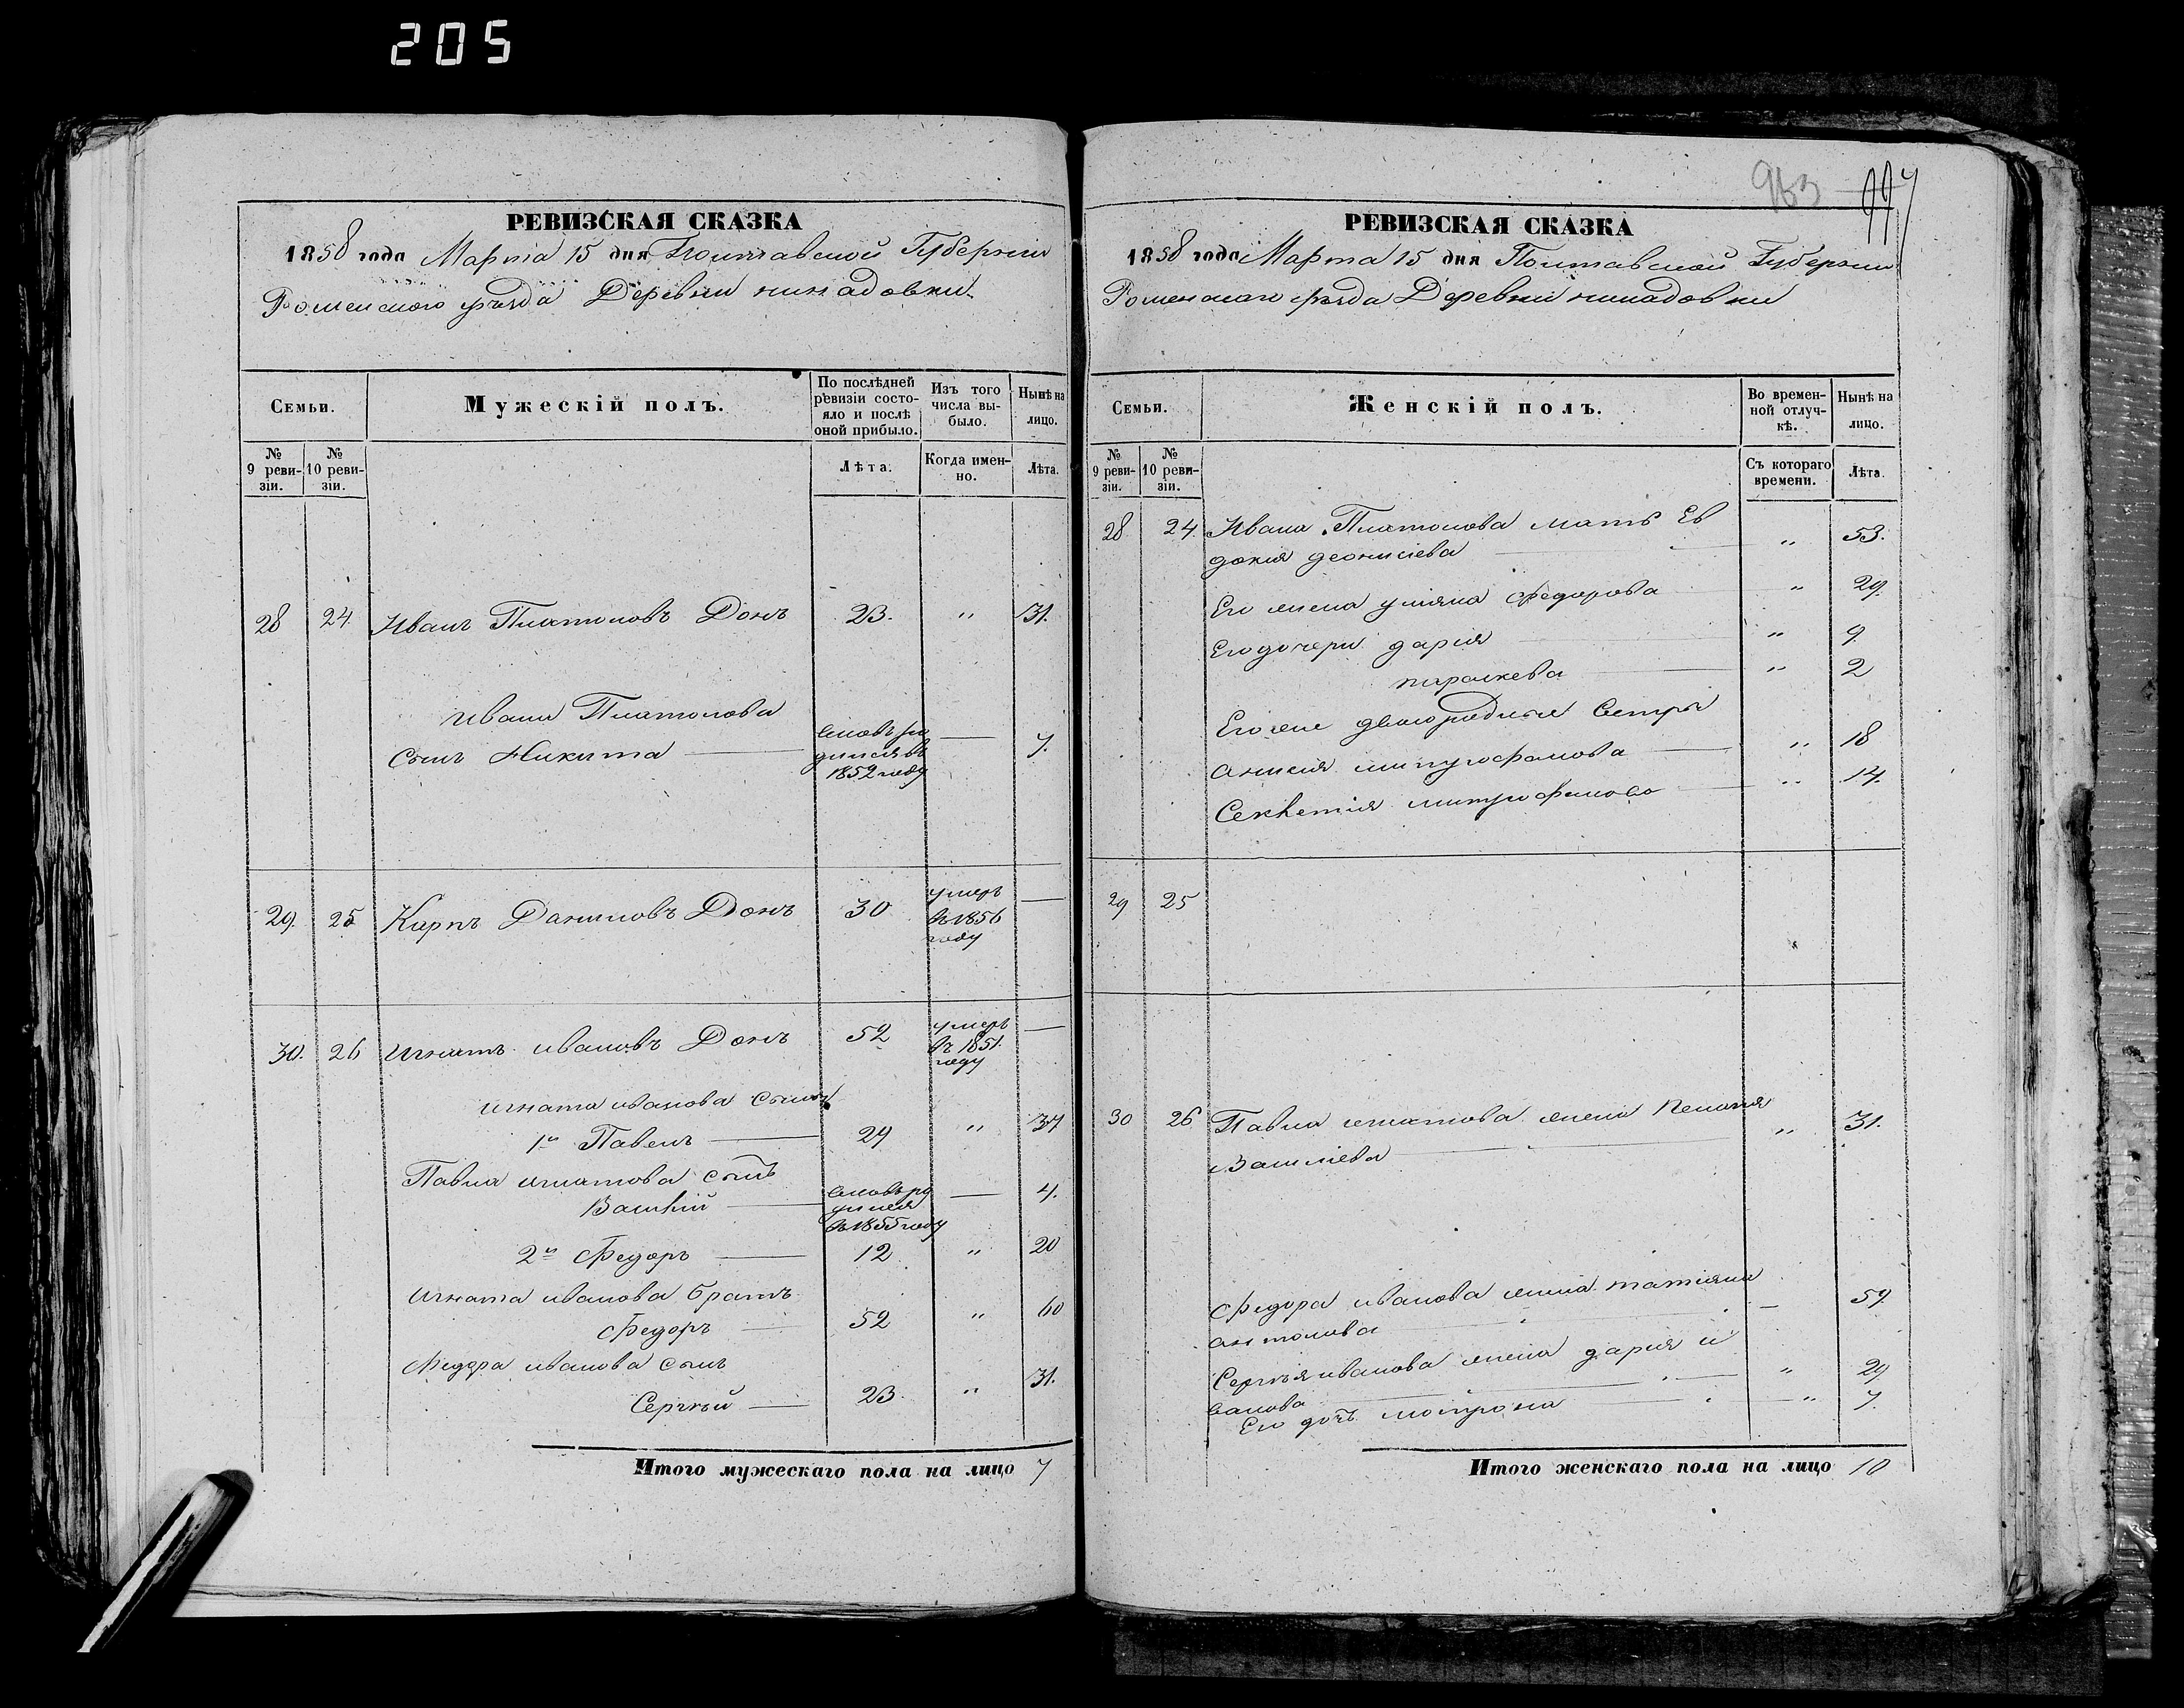 205
РЕВИЗСКАЯ СКАЗКА
1858 года Марта 15 дня Полтавской Губернии
Роменского уѣзда Деревни
Семьи.
Мужескій полъ.
По послѣдней ревизіи состояло и послѣ оной прибыло.
Изъ того числа выбыло.
Нынѣ на лицо.
№ 9 ревизіи.
№ 10 ревизіи.
Лѣта.
Когда именно.
Лѣта.
28 24 Иванъ Платоновъ Донъ 23. " 31.
Ивана Платонова
сынъ Никита — вновь родился въ 1852 году — 7.
29. 25 Карпъ Даниловъ Донъ 30 умеръ въ 1856 году —
30. 26 Игнатъ ивановъ Донъ 52 умеръ въ 1851. году —
игната иванова сыны
1й Павелъ — 29 " 37
Павла игнатова сынъ
Василій — вновь родился въ 1855 году — 4.
2й Федоръ — 12 " 20
игната иванова братъ
Федоръ — 52 " 60
Федора иванова сынъ
Сергѣй — 23 " 31.
Итого мужескаго пола на лицо 7
963
РЕВИЗСКАЯ СКАЗКА
1858 года Марта 15 дня Полтавской Губернии
Роменского уѣзда Деревни
Семьи.
Женскій полъ.
Во временной отлучкѣ.
Нынѣ на лицо.
№ 9 ревизіи.
№ 10 ревизіи.
Съ котораго времени.
Лѣта.
28 24. Ивана Платонова мать Ев
докия деонисіева — " 53.
Его жена уліяна федорова " 29.
Его дочери дария — " 9
параскева — " 2
Его же двоюродные Сестры
анисия митрофанова — " 18
митрофанова — " 14.
29 25
30 26 Павла игнатова жена
Василіева — " 31.
Федора иванова жена татияна
антонова — 59.
Сергѣя иванова жена дария и
ванова — " 29
Его дочь мотрона — " 7.
Итого женскаго пола на лицо 10